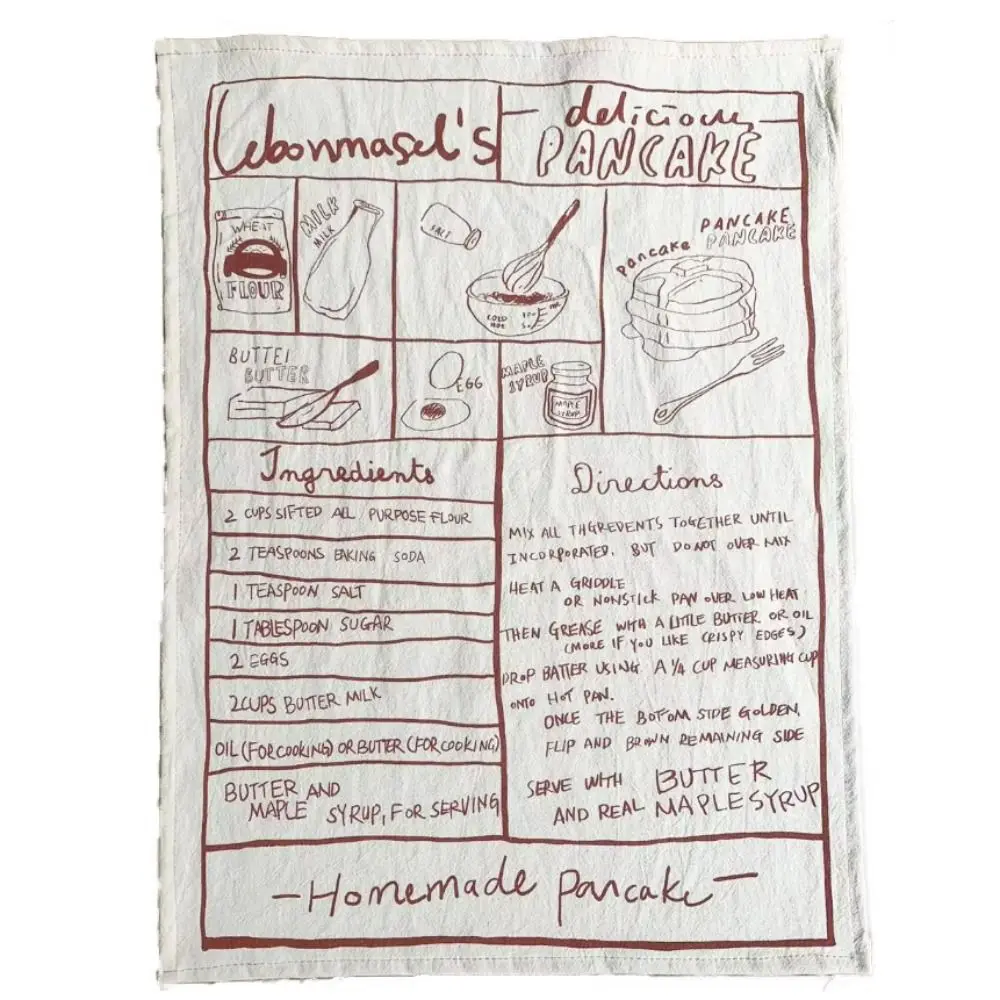 Lebonmasel's
delicious
PANCAKE
WHEAT
FLOUR
MILK
MILK
SALT
COLD
HOT
PANCAKE
PANCAKE
pancake
BUTTEI
BUTTER
EGG
MAPLE
SYRUP
MAPLE
SYRUP
Ingredients
2 CUPS SIFTED ALL PURPOSE FLOUR
2 TEASPOONS BAKING SODA
1 TEASPOON SALT
1 TABLESPOON SUGAR
2 EGGS
2CUPS BUTTER MILK
OIL (FOR COOKING) OR BUTTER (FOR COOKING)
BUTTER AND
MAPLE SYRUP, FOR SERVING
Directions
MIX ALL THGREDENTS TOGETHER UNTIL
INCORPORATED, BUT DO NOT OVER MIX
HEAT A GRIDDLE
OR NONSTICK PAN OVER LOW HEAT
THEN GREASE WITH A LITTLE BUTTER OR OIL
(MORE IF YOU LIKE CRISPY EDGES)
DROP BATTER USING A 1/4 CUP MEASURING CUP
ONTO HOT PAN.
ONCE THE BOTTOM SIDE GOLDEN,
FLIP AND BROWN REMAINING SIDE
SERVE WITH BUTTER
AND REAL MAPLE SYRUP
-Homemade pancake-